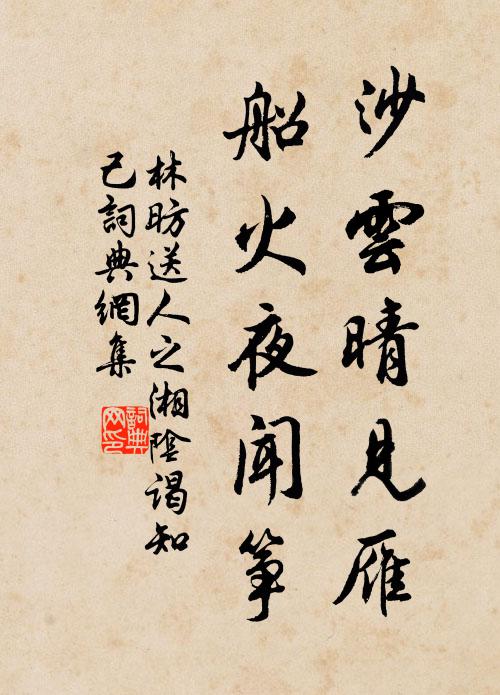 沙雲晴見雁
船火夜聞箏
林昉送人之湘陰謁知
己詞典網集
詞典网印